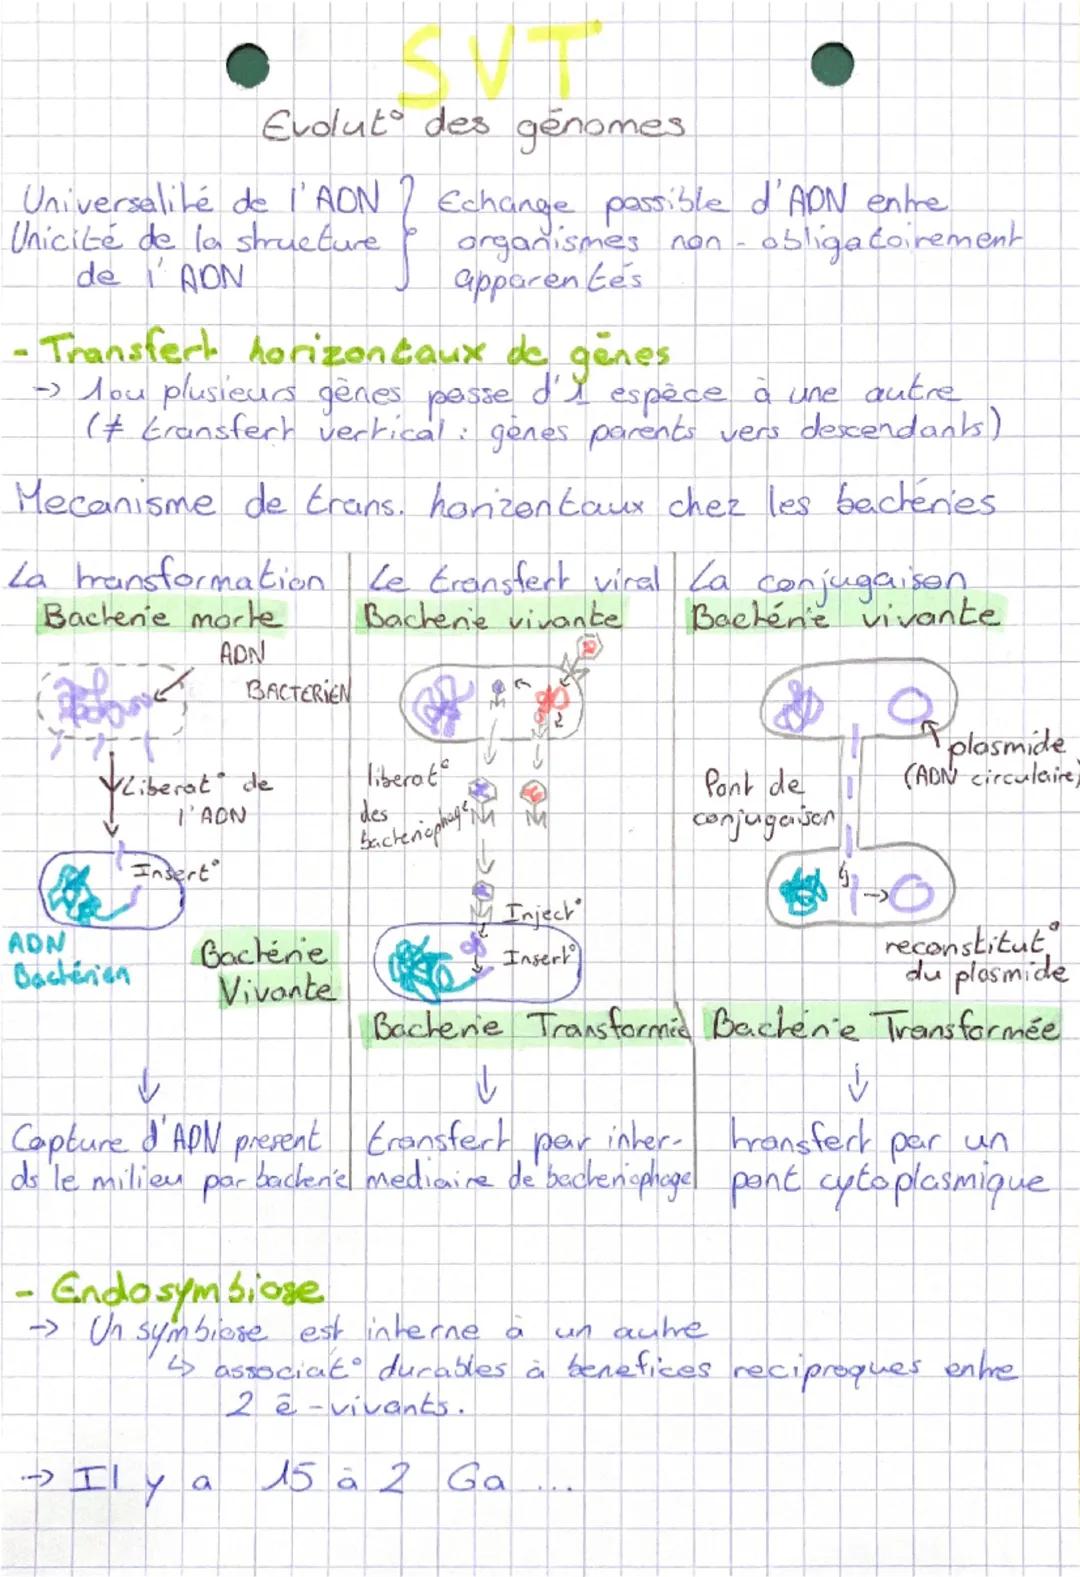 SVT
Evolut° des génomes
Universalité de l'ADN } Echange possible d'ADN entre
Unicité de la structure organismes non-obligatoirement
de l'ADN apparentés
- Transfert horizontaux de gènes
-> 1 ou plusieurs gènes passe d'1 espèce à une autre
(≠ transfert vertical : gènes parents vers descendants)
Mecanisme de trans. horizontaux chez les bactéries
La transformation
Bacterie morte
ADN
BACTERIEN
Liberat° de
l'ADN
Insert°
ADN
Bactérien
Bactérie
Vivante
↓
Capture d'ADN present
ds le milieu par bacterie
Le transfert viral
Bacterie vivante
liberat°
des
bacteriophage
Inject°
Insert°
Bacterie Transformée
↓
transfert par inter-
mediaire de bacteriophage
La conjugaison
Bactérie vivante
plasmide
(ADN circulaire)
Pont de
conjugaison
reconstitut°
du plasmide
Bactérie Transformée
↓
transfert par un
pont cytoplasmique
- Endosymbiose
-> Un symbiose est interne à un autre
↳ associat° durables à benefices reciproques entre
2 ê-vivants.
-> Il y a 15 à 2 Ga ...